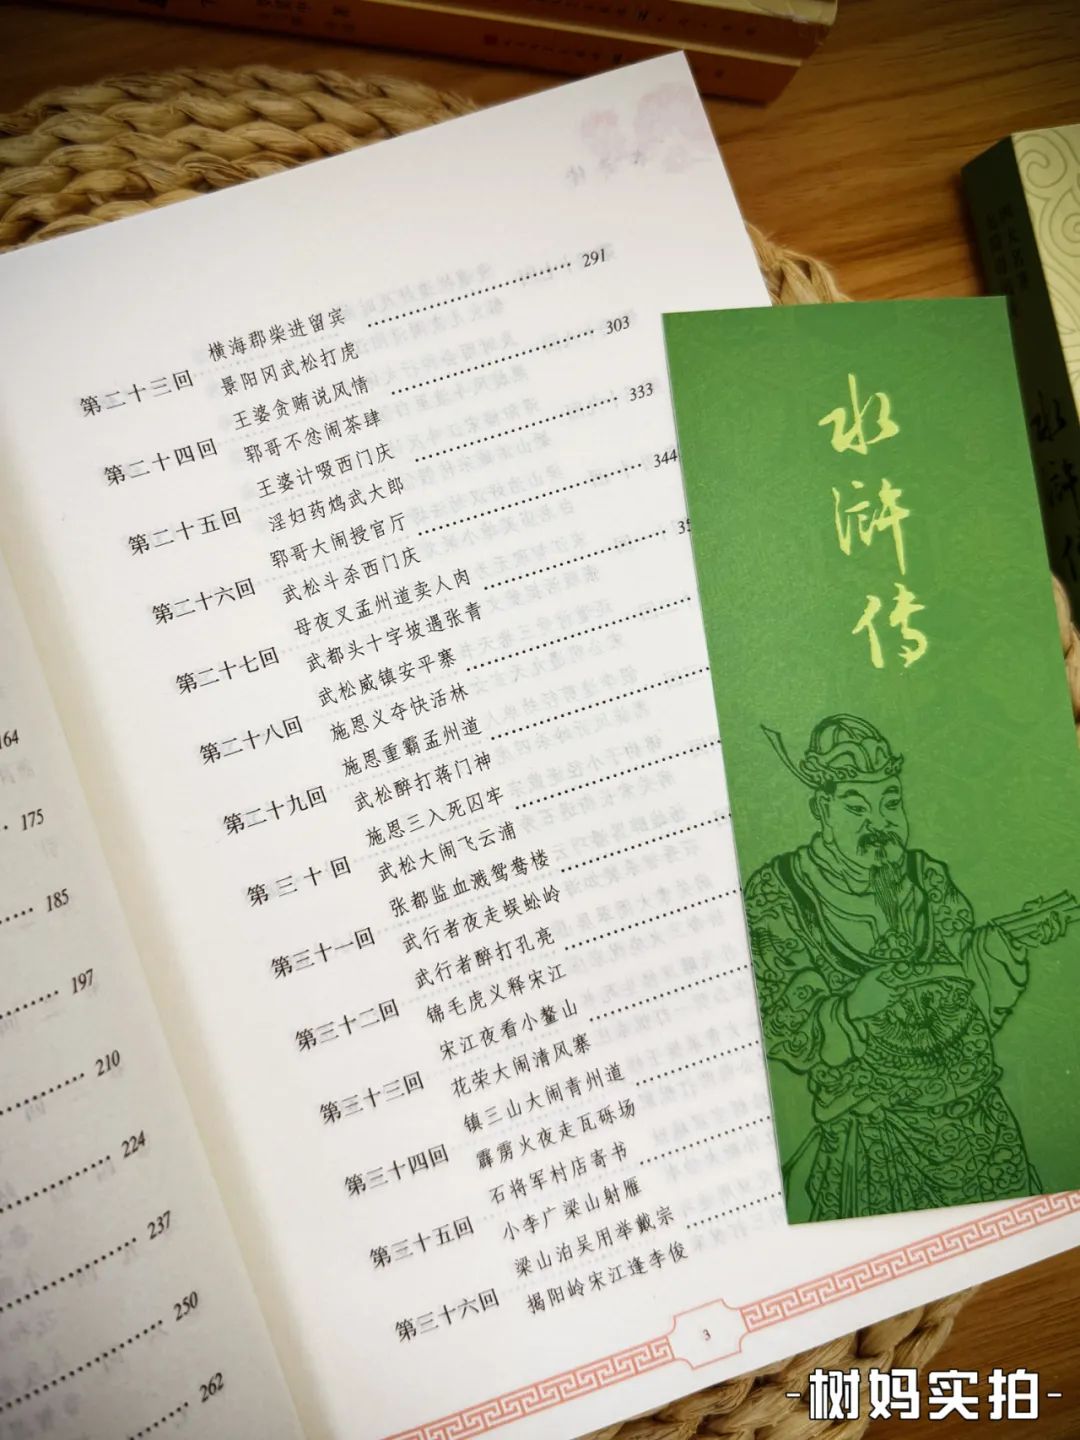 横海郡柴进留宾
第二十三回 景阳冈武松打虎 291
王婆贪贿说风情
第二十四回 郓哥不忿闹茶肆 303
王婆计啜西门庆
第二十五回 淫妇药鸩武大郎 333
郓哥大闹授官厅
第二十六回 武松斗杀西门庆 344
母夜叉孟州道卖人肉
第二十七回 武都头十字坡遇张青
武松威镇安平寨
第二十八回 施恩义夺快活林
施恩重霸孟州道
第二十九回 武松醉打蒋门神
施恩三入死囚牢
第三十回 武松大闹飞云浦
张都监血溅鸳鸯楼
第三十一回 武行者夜走蜈蚣岭
武行者醉打孔亮
第三十二回 锦毛虎义释宋江
宋江夜看小鳌山
第三十三回 花荣大闹清风寨
镇三山大闹青州道
第三十四回 霹雳火夜走瓦砾场
石将军村店寄书
第三十五回 小李广梁山射雁
梁山泊吴用举戴宗
第三十六回 揭阳岭宋江逢李俊
3
164
175
185
197
210
224
237
250
262
水浒传
水浒传
-树妈实拍-